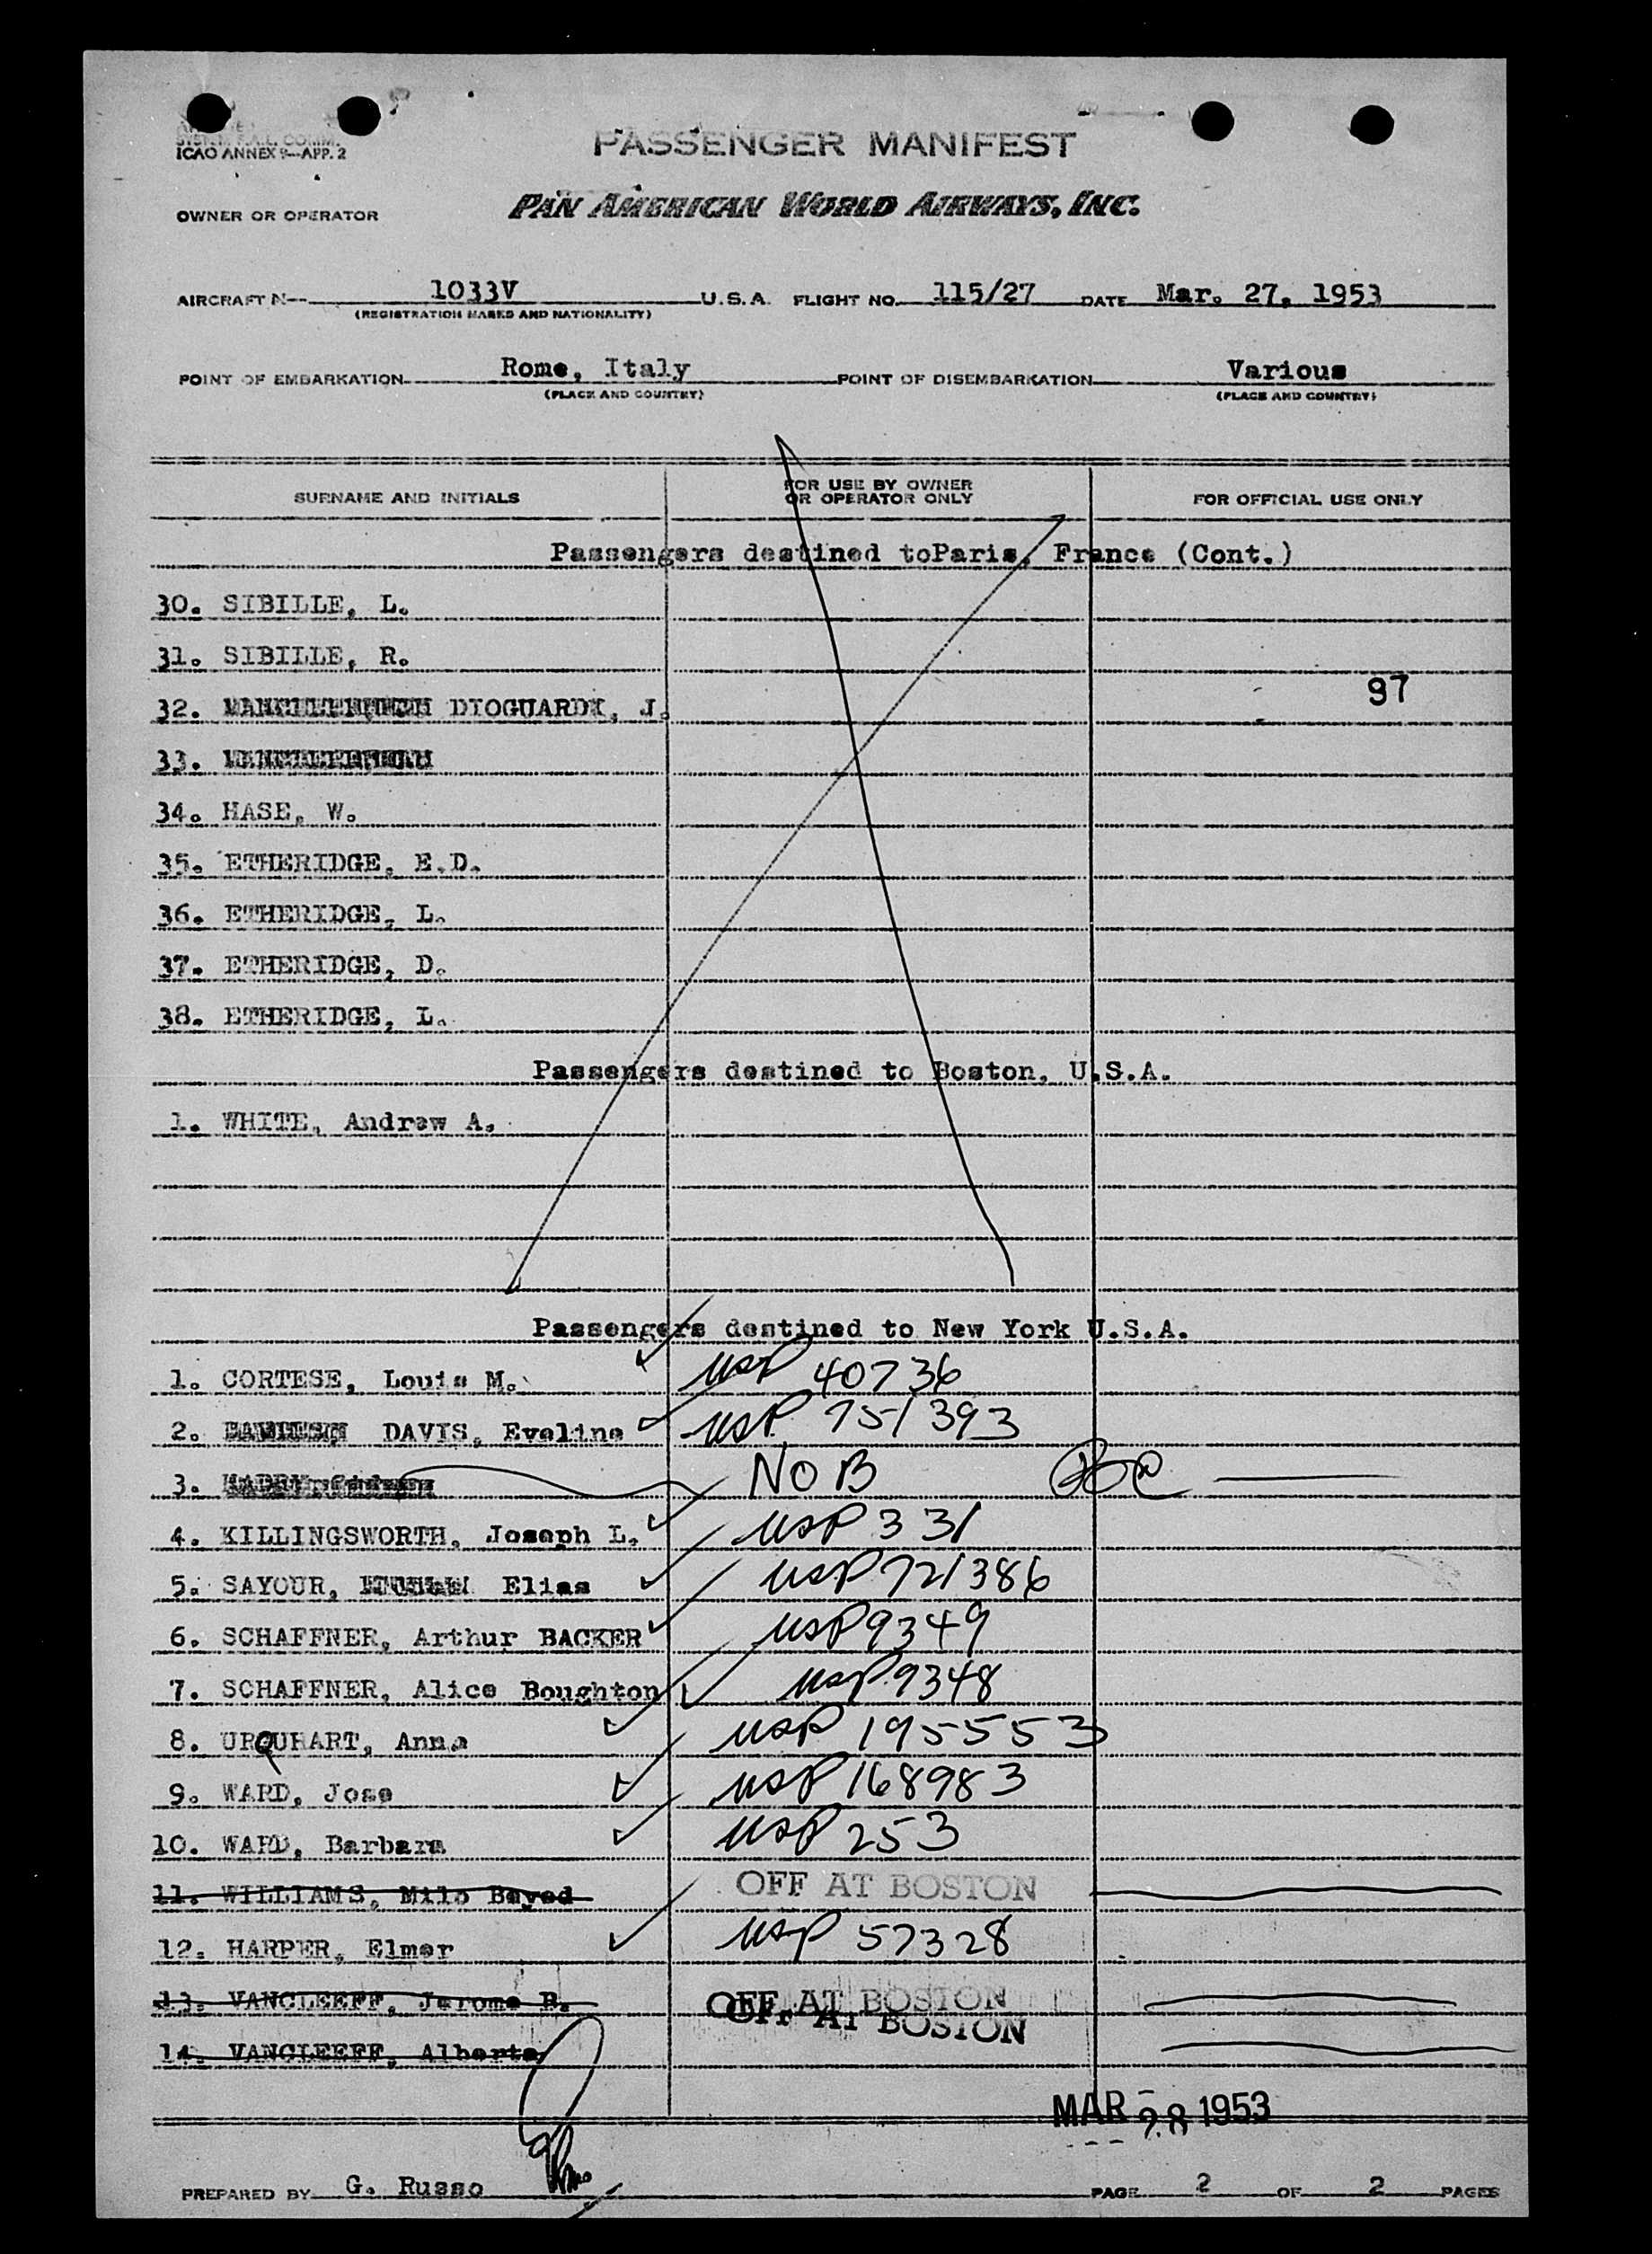 ICAO ANNEX 9—APP. 2
PASSENGER MANIFEST
OWNER OR OPERATOR
PAN AMERICAN WORLD AIRWAYS, INC.
AIRCRAFT N-- 1033V U.S.A. FLIGHT NO. 115/27 DATE Mar. 27, 1953
(REGISTRATION MARKS AND NATIONALITY)
POINT OF EMBARKATION Rome, Italy POINT OF DISEMBARKATION Various
(PLACE AND COUNTRY) (PLACE AND COUNTRY)
SURNAME AND INITIALS FOR USE BY OWNER OR OPERATOR ONLY FOR OFFICIAL USE ONLY
Passengers destined toParis, France (Cont.)
30. SIBILLE, L.
31. SIBILLE, R.
97
32. DIOGUARDI, J.
33.
34. HASE, W.
35. ETHERIDGE, E.D.
36. ETHERIDGE, L.
37. ETHERIDGE, D.
38. ETHERIDGE, L.
Passengers destined to Boston, U.S.A.
1. WHITE, Andrew A.
Passengers destined to New York U.S.A.
1. CORTESE, Louis M. USP 40736
2. DAVIS, Eveline USP 751393
3. NOB
4. KILLINGSWORTH, Joseph L. USP 331
5. SAYOUR, Elias USP 721386
6. SCHAFFNER, Arthur BACKER USP 9349
7. SCHAFFNER, Alice Boughton USP 9348
8. URQUHART, Anna USP 195553
9. WARD, Jose USP 168983
10. WARD, Barbara USP 253
11. WILLIAMS, Milo Bayed OFF AT BOSTON
12. HARPER, Elmer USP 57328
13. VANCLEEFF, Jerome B. OFF AT BOSTON
14. VANCLEEFF, Alberta OFF AT BOSTON
MAR 28 1953
PREPARED BY G. Russo PAGE 2 OF 2 PAGES